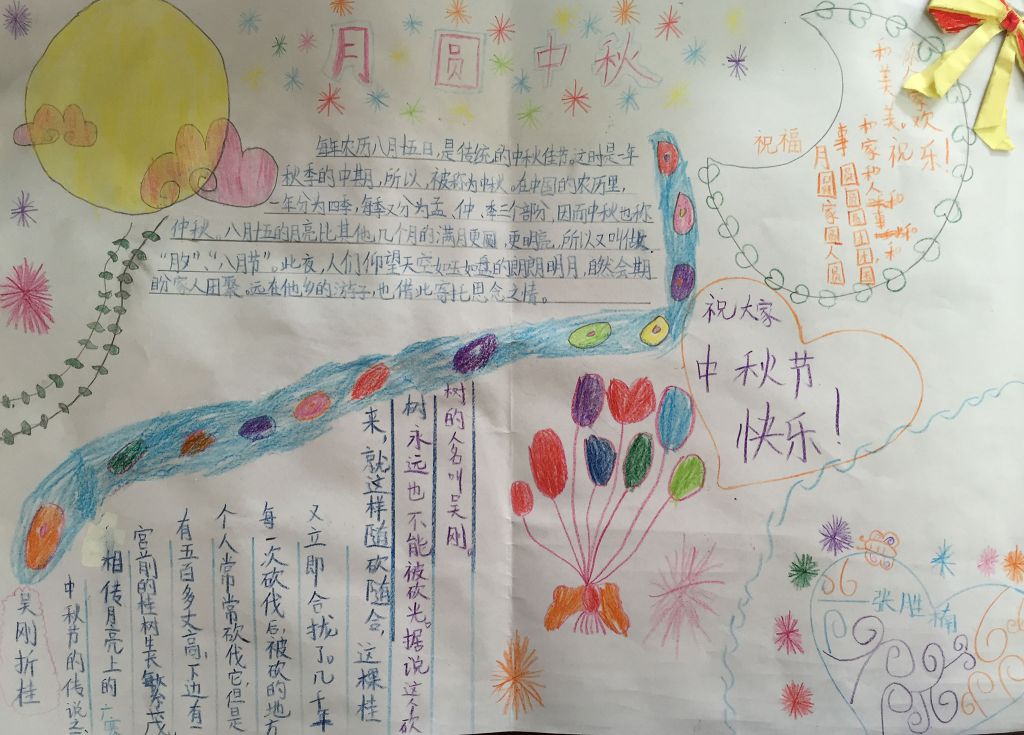 月圆中秋
每年农历八月十五日,是传统的中秋佳节。这时是一年
秋季的中期,所以,被称为中秋。在中国的农历里,
一年分为四季,每季又分为孟、仲、季三个部分,因而中秋也称
仲秋。八月十五的月亮比其他几个月的满月更圆,更明亮,所以又叫做
“月夕”、“八月节”。此夜,人们仰望天空如玉如盘的朗朗明月,自然会期
盼家人团聚。远在他乡的游子,也借此寄托思念之情。
祝福
欢乐!
和美美,祝
和家和人
事圆圆团圆
月圆家圆人圆
祝大家
中秋节
快乐!
吴刚折桂
中秋节的传说之
相传月亮上的广寒
宫前的桂树生长繁茂,
有五百多丈高,下边有一
个人常常砍伐它,但是
每一次砍伐后,被砍的地方
又立即合拢了。几千年
来,就这样随砍随合,这棵桂
树永远也不能被砍光。据说这个砍
树的人名叫吴刚。
06
张胜楠